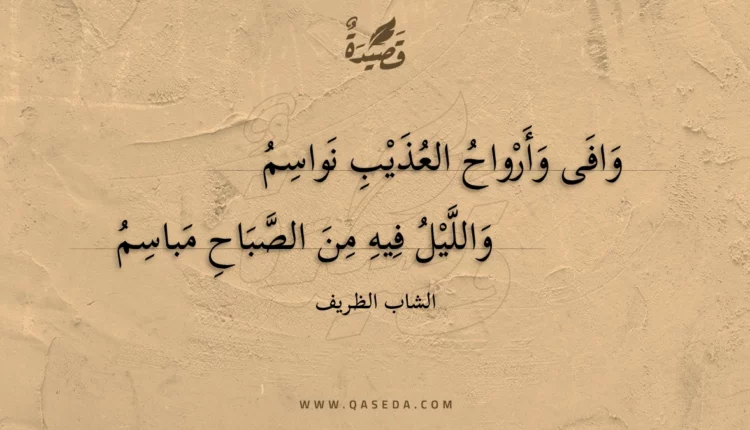 قَصِيْدَةٌ
وَافَى وَأَرْوَاحُ العُذَيْبِ نَواسِمُ
وَاللَّيْلُ فِيهِ مِنَ الصَّبَاحِ مَباسِمُ
الشاب الظريف
WWW.QASEDA.COM